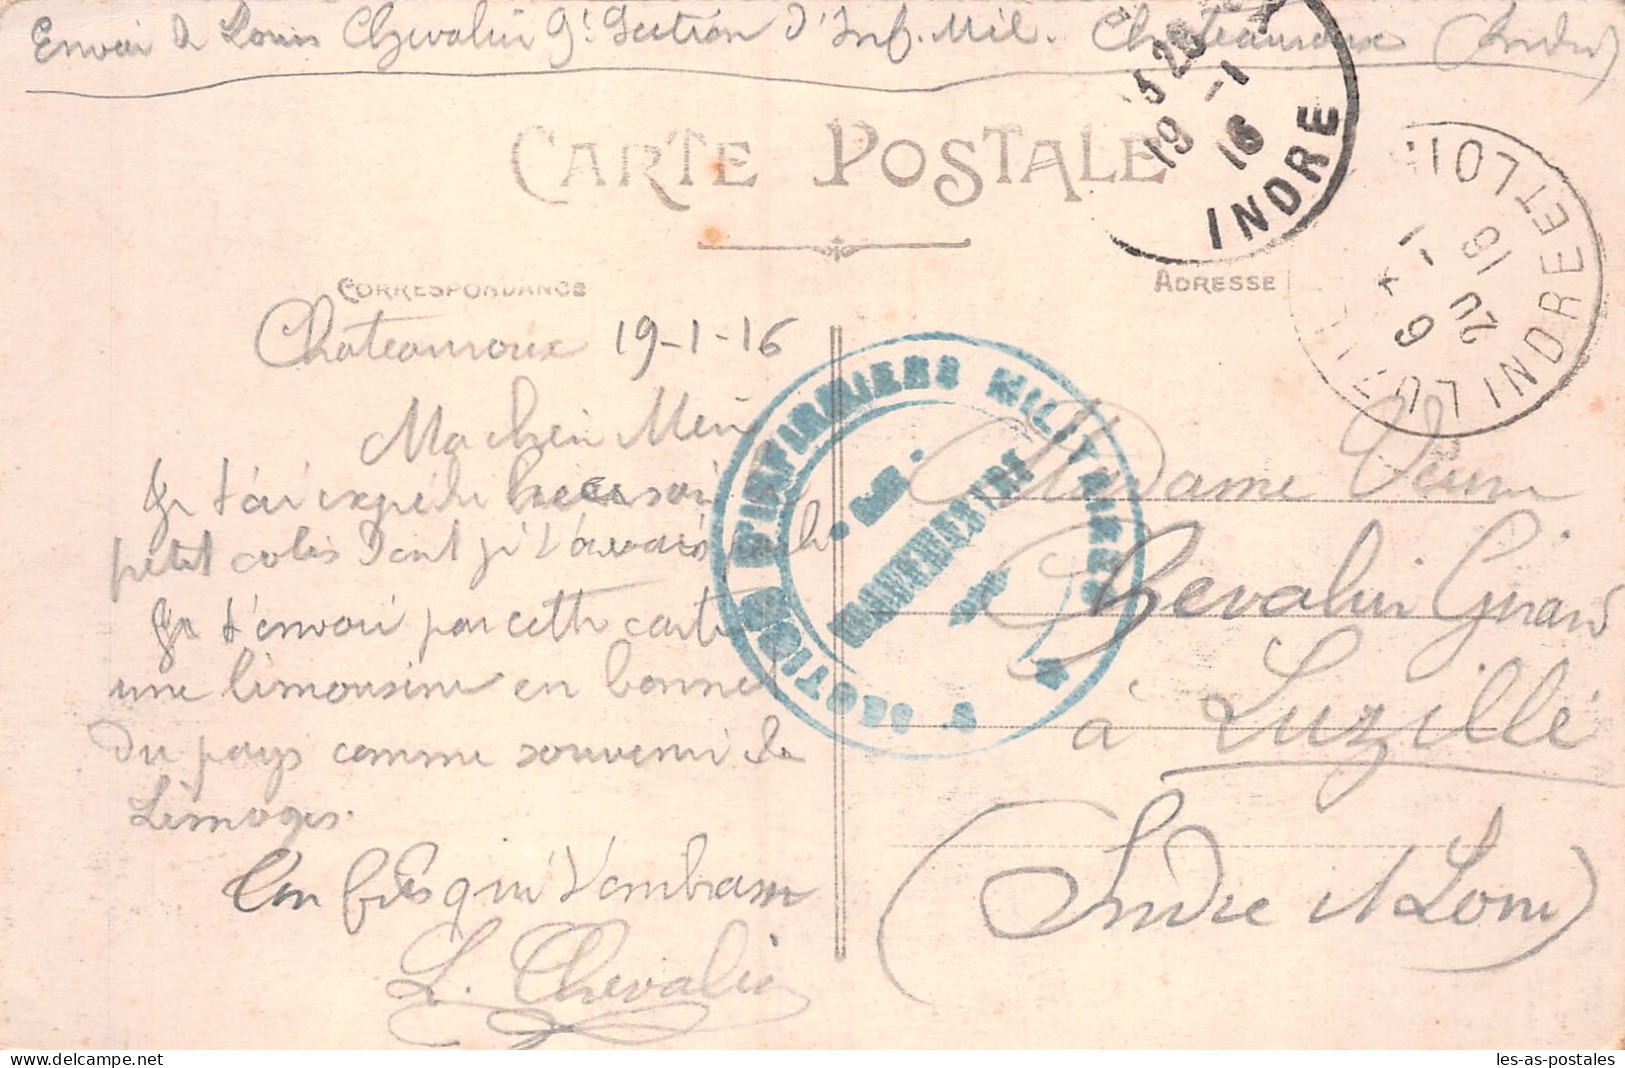 Envoi de Louis Chevalier 9e Section d'Inf. Mil. Chateauroux (Indre)
CARTE POSTALE
CORRESPONDANCE
ADRESSE
20
19 -1
16
INDRE
LUZILLÉ INDRE ET LOIRE
20 -1 16
SECTION D'INFIRMIERS MILITAIRES
Chateauroux 19-1-16
Ma chère Mère
Je t'ai expédié
petit colis dont je
Je t'envoi par cette carte
une limousine en bonnet
du pays comme souvenir de
Limoges.
Ton fils qui t'embrasse
L. Chevalier
Madame Veuve
Chevalier Girard
à Luzillé
(Indre et Loire)
les-as-postales